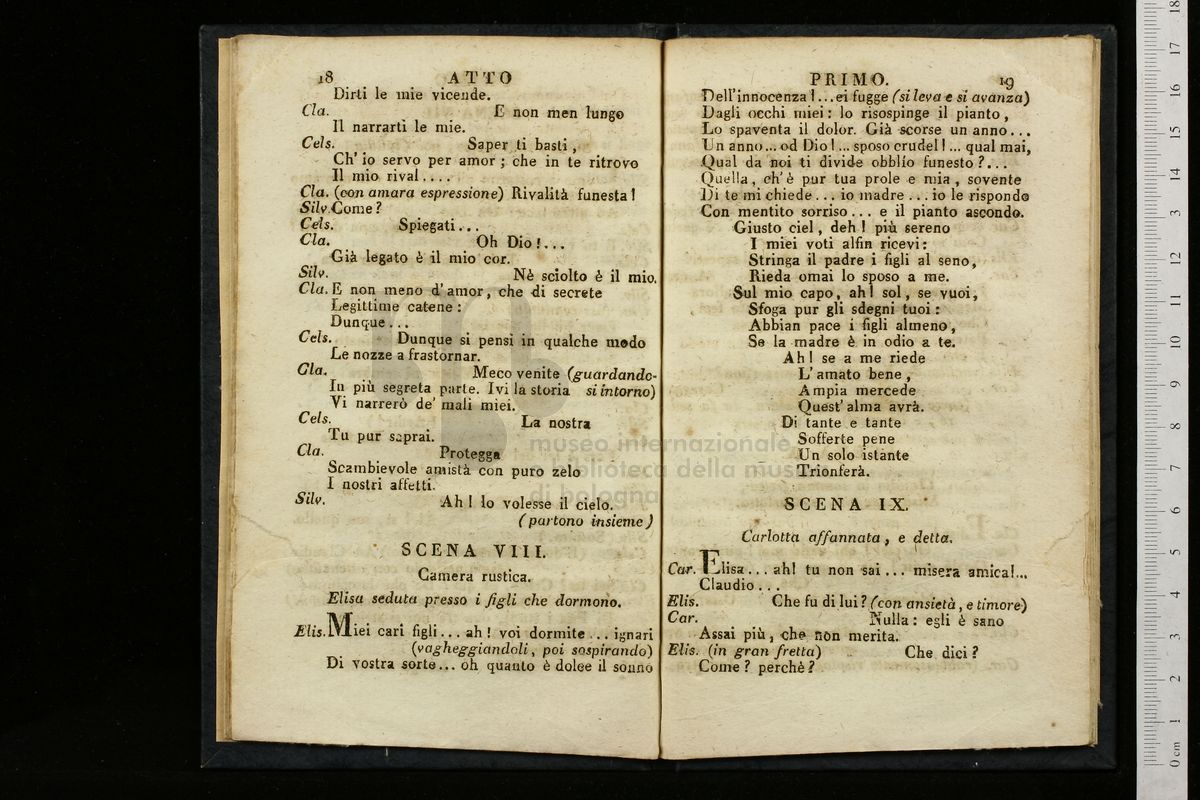 18 ATTO
Dirti le mie vicende.
Cla. E non men lungo
Il narrarti le mie.
Cels. Saper ti basti,
Ch' io servo per amor; che in te ritrovo
Il mio rival....
Cla. (con amara espressione) Rivalità funesta!
Silv. Come?
Cels. Spiegati...
Cla. Oh Dio!...
Già legato è il mio cor.
Silv. Nè sciolto è il mio.
Cla. E non meno d'amor, che di secrete
Legittime catene:
Dunque...
Cels. Dunque si pensi in qualche modo
Le nozze a frastornar.
Cla. Meco venite (guardando-
In più segreta parte. Ivi la storia si intorno)
Vi narrerò de' mali miei.
Cels. La nostra
Tu pur saprai.
Cla. Protegga
Scambievole amistà con puro zelo
I nostri affetti.
Silv. Ah! lo volesse il cielo.
(partono insieme)
SCENA VIII.
Camera rustica.
Elisa seduta presso i figli che dormono.
Elis. Miei cari figli... ah! voi dormite... ignari
(vagheggiandoli, poi sospirando)
Di vostra sorte... oh quanto è dolce il sonno
PRIMO. 19
Dell'innocenza!...ei fugge (si leva e si avanza)
Dagli occhi miei: lo risospinge il pianto,
Lo spaventa il dolor. Già scorse un anno...
Un anno... od Dio!... sposo crudel!... qual mai,
Qual da noi ti divide obblío funesto?...
Quella, ch'è pur tua prole e mia, sovente
Di te mi chiede... io madre... io le rispondo
Con mentito sorriso... e il pianto ascondo.
Giusto ciel, deh! più sereno
I miei voti alfin ricevi:
Stringa il padre i figli al seno,
Rieda omai lo sposo a me.
Sul mio capo, ah! sol, se vuoi,
Sfoga pur gli sdegni tuoi:
Abbian pace i figli almeno,
Se la madre è in odio a te.
Ah! se a me riede
L'amato bene,
Ampia mercede
Quest'alma avrà.
Di tante e tante
Sofferte pene
Un solo istante
Trionferà.
SCENA IX.
Carlotta affannata, e detta.
Car. Elisa... ah! tu non sai... misera amica!...
Claudio...
Elis. Che fu di lui? (con ansietà, e timore)
Car. Nulla: egli è sano
Assai più, che non merita.
Elis. (in gran fretta) Che dici?
Come? perchè?
museo internazionale
e biblioteca della musica
di bologna
0 cm 1 2 3 4 5 6 7 8 9 10 11 12 13 14 15 16 17 18